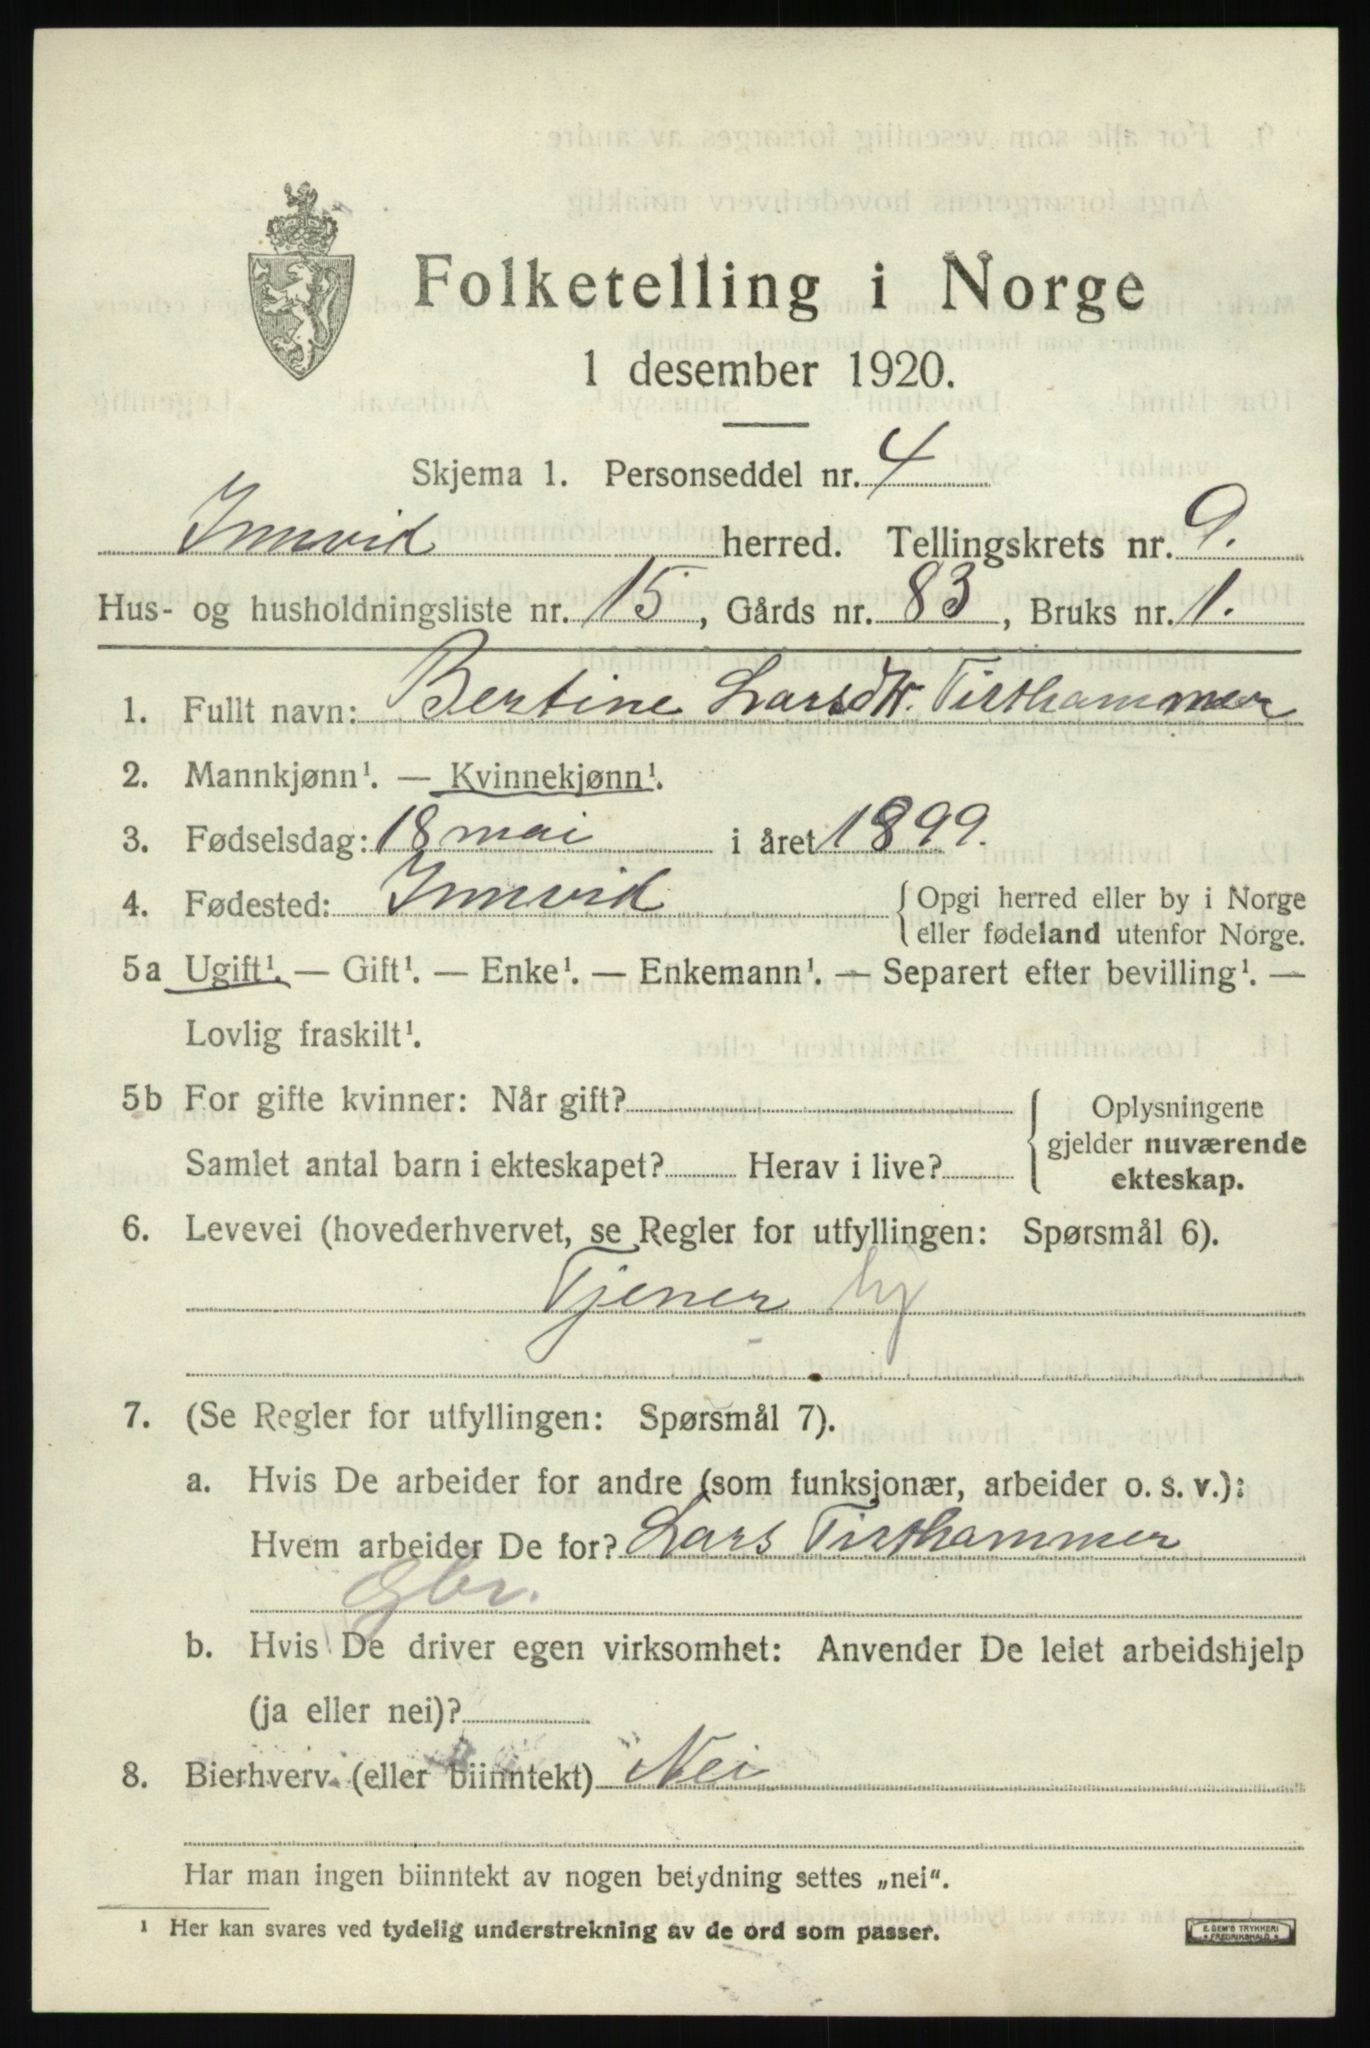 Folketelling i Norge
1 desember 1920.
Skjema 1. Personseddel nr. 4
Innvik herred. Tellingskrets nr. 9.
Hus- og husholdningsliste nr. 15, Gårds nr. 83, Bruks nr. 1.
1. Fullt navn: Bertine Larsdtr. Tisthammer
2. Mannkjønn¹. — Kvinnekjønn¹.
3. Fødselsdag: 18 mai i året 1899.
4. Fødested: Innvik {Opgi herred eller by i Norge
eller fødeland utenfor Norge.
5a Ugift¹. — Gift¹. — Enke¹. — Enkemann¹. — Separert efter bevilling¹. —
Lovlig fraskilt¹.
5b For gifte kvinner: Når gift? { Oplysningene
gjelder nuværende
Samlet antal barn i ekteskapet? Herav i live?
ekteskap.
6. Levevei (hovederhvervet, se Regler for utfyllingen: Spørsmål 6).
Tjener hj
7. (Se Regler for utfyllingen: Spørsmål 7).
a. Hvis De arbeider for andre (som funksjonær, arbeider o. s. v.):
Hvem arbeider De for? Lars Tisthammer
Gbr.
b. Hvis De driver egen virksomhet: Anvender De leiet arbeidshjelp
(ja eller nei)?
8. Bierhverv (eller biinntekt) Nei
Har man ingen biinntekt av nogen betydning settes „nei“.
¹ Her kan svares ved tydelig understrekning av de ord som passer.
E. SEM'S TRYKKERI
FREDRIKSHALD